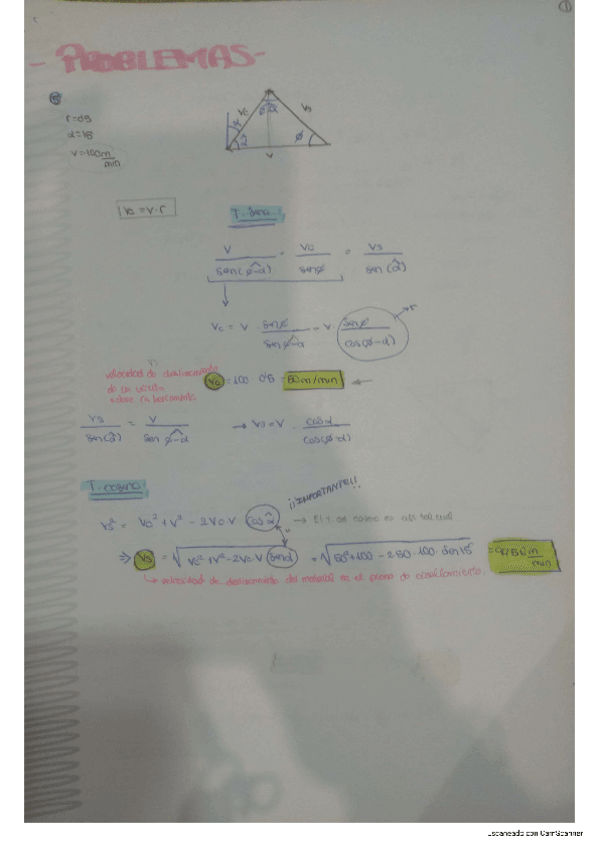 ①
- PROBLEMAS -
r=0'5
α=15
V=100 m/min
Vc α φ-α Vs
φ
V
Vc = V·r
T. Seno
V / sen(φ-α) = Vc / senφ = Vs / sen(α)
Vc = V · senφ / sen φ-α = V · senφ / cos(φ-α) → r
velocidad de deslizamiento
de la viruta
sobre la herramienta
Vc = 100 · 0'5 = 50 m/min
Vs / sen(α) = V / sen φ-α → Vs = V · cosα / cos(φ-α)
T. coseno
¡¡IMPORTANTE!!
Vs² = Vc² + V² - 2Vc·V cos α → El t. del coseno es
⇒ Vs = √Vc² + V² - 2Vc·V senα = √50² + 100 - 2·50·100·sen15
↳ velocidad de deslizamiento del material en el plano de cizallamiento.
Escaneado con CamScanner